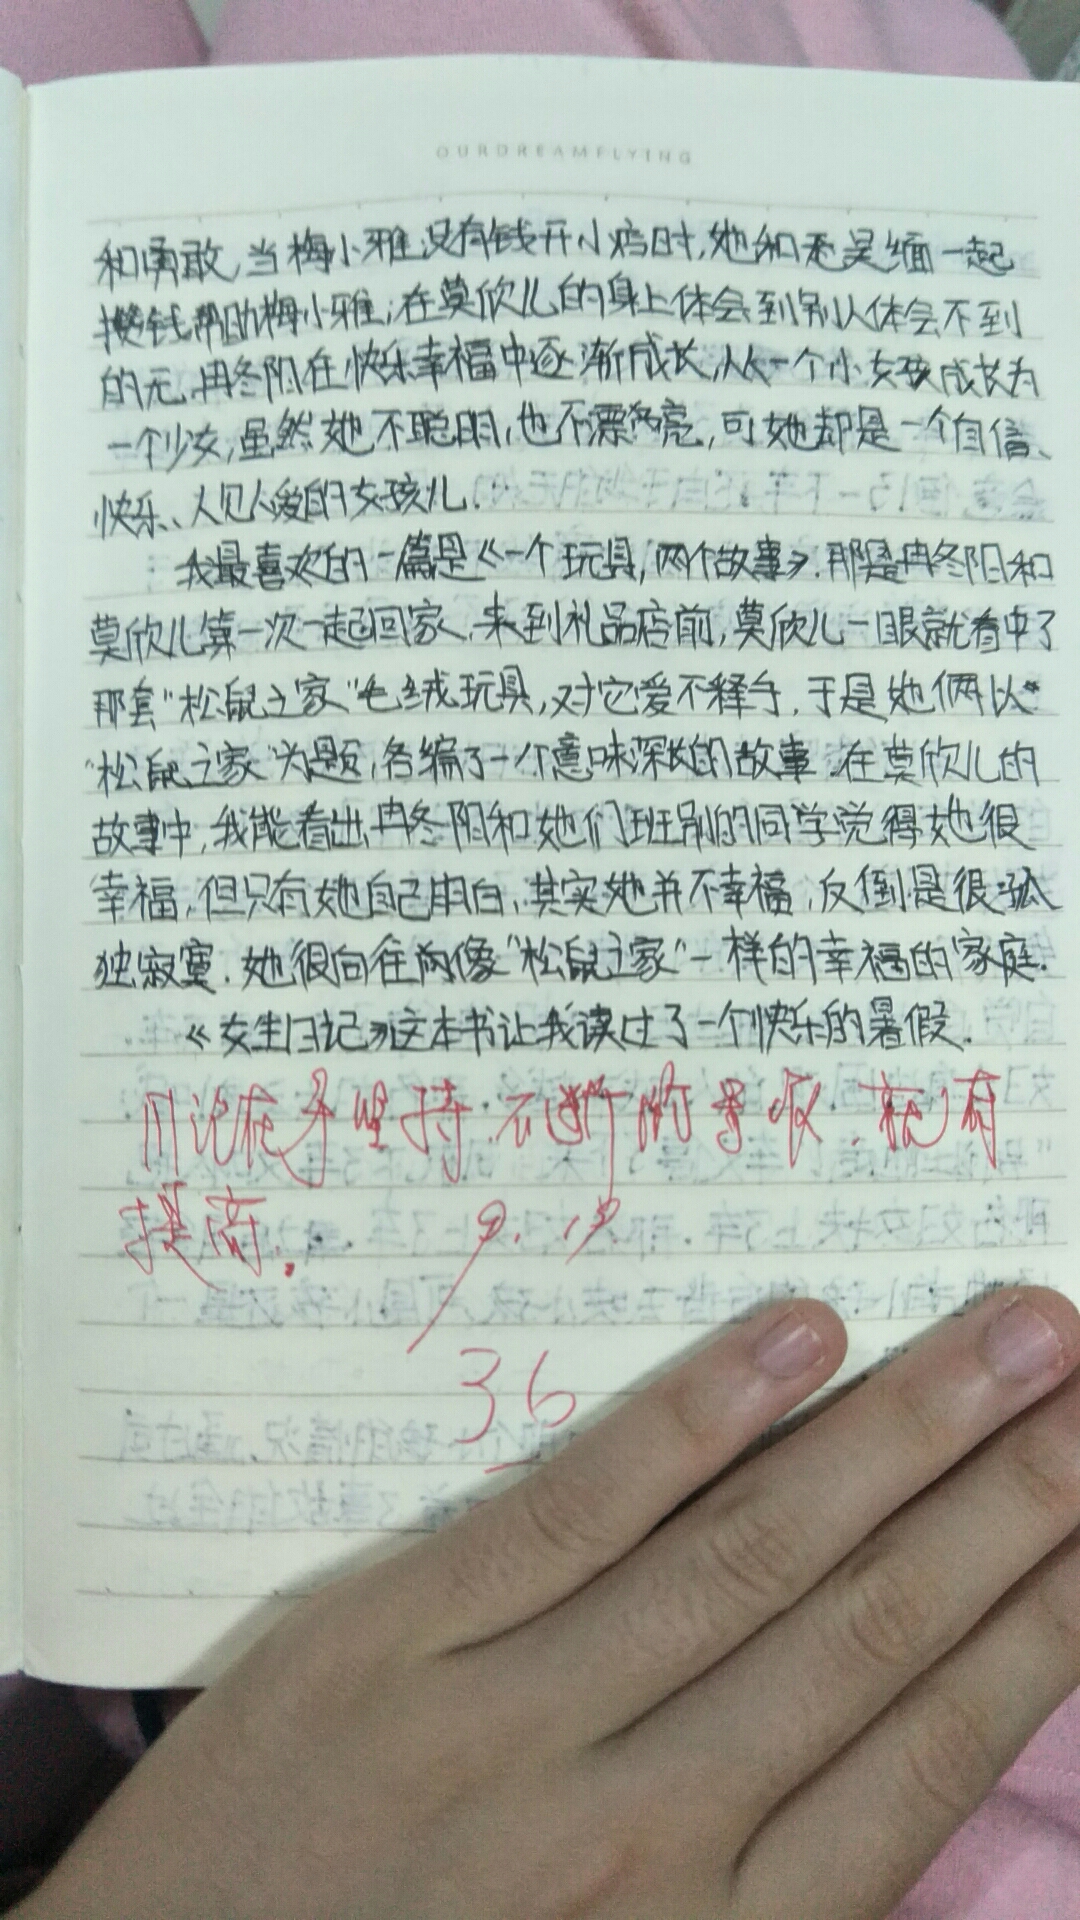 OURDREAMFLYING
和勇敢,当梅小雅没有钱开小店时,她和吴缅一起
攒钱帮助梅小雅;在莫欣儿的身上体会到别人体会不到
的无.冉冬阳在快乐幸福中逐渐成长,从一个小女孩成长为
一个少女,虽然她不聪明,也不漂亮,可她却是一个自信、
快乐、人见人爱的女孩儿.
我最喜欢的一篇是《一个玩具,两个故事》.那是冉冬阳和
莫欣儿第一次一起回家,来到礼品店前,莫欣儿一眼就看中了
那套“松鼠之家”毛绒玩具,对它爱不释手,于是她俩以
“松鼠之家”为题,各编了一个意味深长的故事.在莫欣儿的
故事中,我能看出冉冬阳和她们班别的同学觉得她很
幸福,但只有她自己明白,其实她并不幸福,反倒是很孤
独寂寞.她很向往像“松鼠之家”一样的幸福的家庭.
《女生日记》这本书让我读过了一个快乐的暑假.
坚持,不断的写,就有
提高.
9.19
36